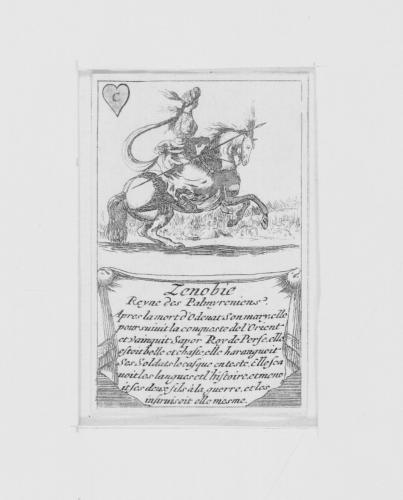 C
Zenobie
Reyne des Palmyreniens.
Apres la mort d'Odenat son mary, elle
poursuivit la conqueste de l'Orient
et vainquit Sapor Roy de Perse, elle
estoit belle et chaste, elle haranguoit
ses Soldats le casque en teste. Elle sca
uoit les langues et l'histoire, et mene
it ses deux fils à la guerre, et les
instruisoit elle mesme.